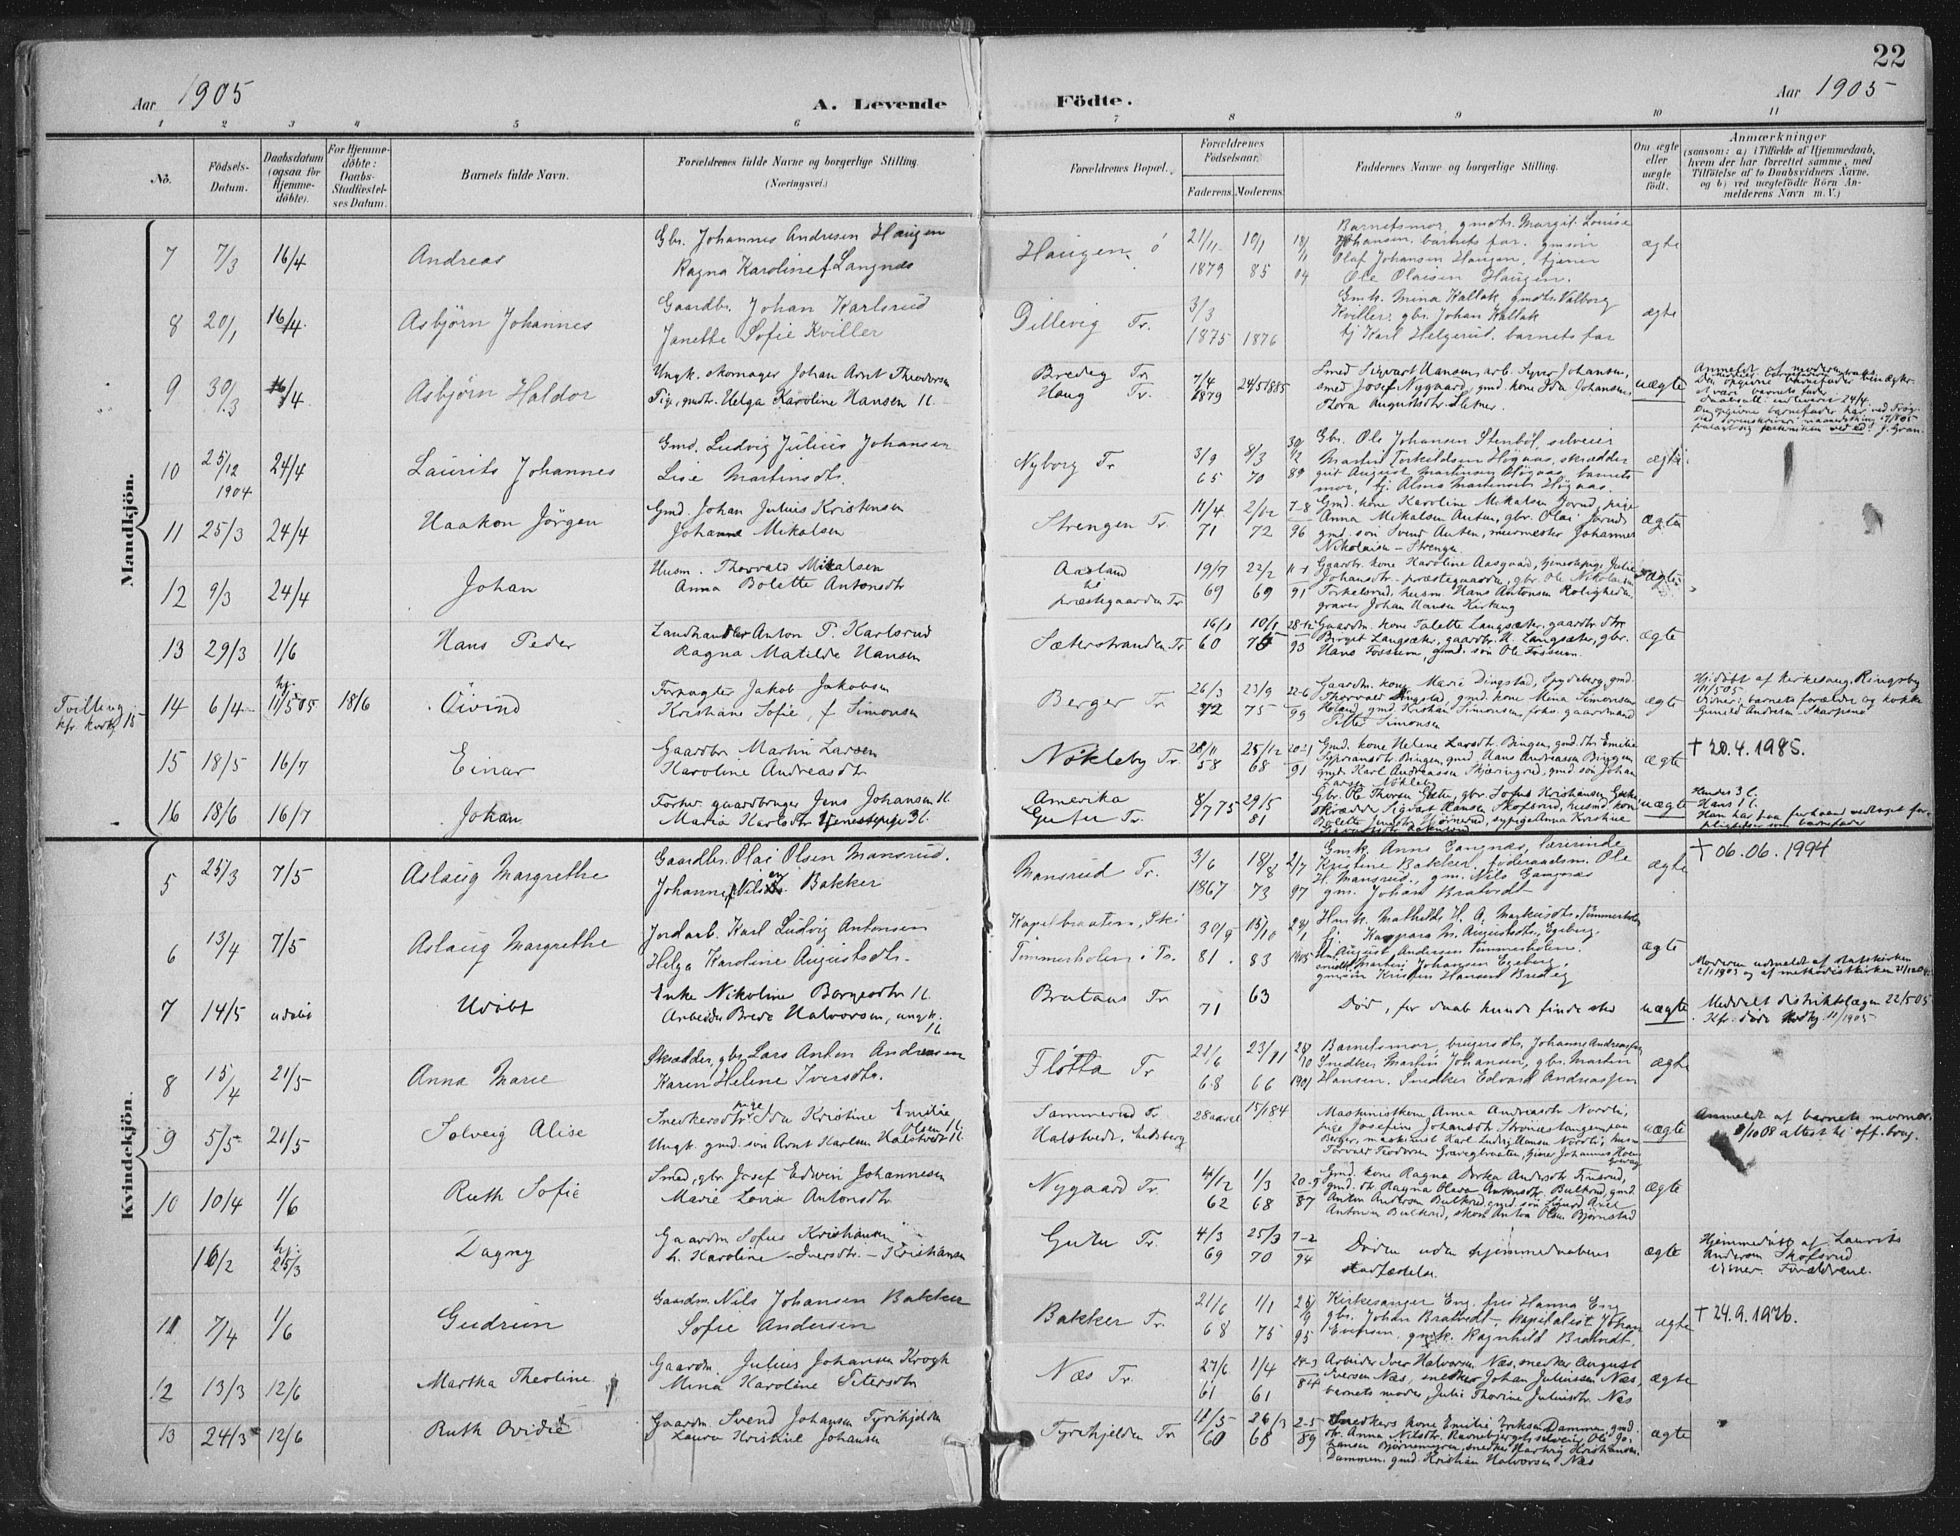 22
Aar 1905
A. Levende Födte.
Aar 1905
1 2 3 4 5 6 7 8 9 10 11
No.
Födsels-
Datum.
Daabsdatum
(ogsaa for
Hjemme-
döbte).
For Hjemme-
döbte:
Daabs-
Stadfæstel-
ses Datum.
Barnets fulde Navn.
Forældrenes fulde Navne og borgerlige Stilling.
(Næringsvei.)
Forældrenes Bopæl.
Forældrenes
Födselsaar.
Faderens. Moderens.
Faddernes Navne og borgerlige Stilling.
Om ægte
eller
uægte
födt.
Anmærkninger
(saasom: a) i Tilfælde af Hjemmedaab,
hvem der har forrettet samme, med
Tilföielse af to Daabsvidners Navne,
og b) ved uægtefödte Börn An-
melderens Navn m. V.)
Mandkjön.
7 7/3 16/4 Andreas
Gbr. Johannes Andresen Haugen
Ragna Karoline f Langnæs
Haugen
21/11 1879 10/1 85
Barnetsmor, gmdtr. Margit Louise
Johansen, barnets far, gmsön
Olaf Johansen Haugen, tjener
Ole Olaisen Haugen.
ægte
8 20/1 16/4 Asbjörn Johannes
Gaardbr. Johan Karlsrud
Janette Sofie Kviller
Dillevig Tr.
3/3 1875 1876
Gmk. Mina Kallak gmdtr Valborg
Kviller, gbr. Johan Kallak
tj Karl Helgerud, barnets far
ægte
9 30/3 16/4 Asbjörn Haldor
Ungk. skomager Johan Arnt Theodorsen
Pige, gmdtr. Helga Karoline Hansen 1l.
Bredeg Tr.
Haug Tr.
7/4 1879 24/5 1885
Smed Sigvart Hansen, arb. Syver Johansen,
smed Josef Nygaard, gmd kone Ida Johansen,
Flora Augustdtr.
uægte
10 25/12 1904 24/4 Laurits Johannes
Gmd. Ludvig Julius Johansen
Lise Martinsdtr.
Nyborg Tr.
3/9 65 8/3 70
Gbr. Ole Johansen Stenböl, selveier
Martin Torkildsen Högaas, skrædder
gut August Martinsen Högaas, barnets
mor, tj. Alma Martinsdtr Högaas.
ægte
11 25/3 24/4 Haakon Jörgen
Gmd. Johan Julius Kristensen
Johanne Mikalsen
Strengen Tr.
11/4 71 2/12 72 7-8 96
Gmd. kone Karoline Mikalsen Jorud, pige
Anna Mikalsen Auten, gbr. Olai Jorud,
gmd. sön Svend Auten, murmester Johannes
Nikolaisen - Strengen
ægte
12 9/3 24/4 Johan
Husm. Thorvald Mikalsen
Anna Bolette Antonsdtr
Aasland
præstegaarden Tr.
19/7 69 22/2 69 11-1 91
Gaardbr. kone Karoline Aasgaard, tjenestepige Julie
Johansdtr. præstegaarden, gbr. Ole Nikolaisen
Torkelsrud, husm. Hans Antonsen Roligheden
graver Johan Hansen Kirkeng
ægte
13 29/3 1/6 Hans Peder
Landhandler Anton P. Karlsrud
Ragna Matilde Hansen
Sæterstranden Tr.
16/1 60 10/1 75 28-12 93
Gaardm. kone Talette Langsæter, gaardbr dtr
Birgit Langsæter, gaardbr. H. Langsæter, gbr.
Hans Fossum, gmd. sön Ole Fossum.
ægte
Tvilling
kfr. kvkj 15
14 6/4 hj. 11/5 05 18/6 Öivind
Forpagter Jakob Jakobsen
Kristiane Sofie, f Simonsen
Berger Tr.
26/3 72 23/9 75 22-6 99
Gaardm. kone Marie Dingstad, Spydeberg, gmd.
Thorvald Ringstad, gmd. kone Mina Simonsen
Höland, gmd. Kristian Simonsen, forh. gaardmand
Petter Simonsen
ægte
Hjdöbt af kirkesang. Ringsby
11/5 05
Vidner: barnets forældre og kokke
Gunild Andresen Skarpsno
15 18/5 16/7 Einar
Gaardbr. Martin Larsen
Karoline Andreasdtr
Nökleby Tr.
28/11 58 25/12 68 20-1 91
Gmd. kone Helene Larsdtr. Bingen, gmd. dtr. Emilie
Sypriansdtr Bingen, gmd. Hans Andreassen Bingen
gmd. Karl Andreassen Skjæringrud, gmd sön Johan
Larsen Nökleby
ægte
† 20.4.1985.
16 18/6 16/7 Johan
Forhv. gaardbruger Jens Johansen 1l.
Maria Karlsdtr tjenestepige 3l.
Amerika
Gutu Tr.
8/7 75 29/5 81
Gbr. Ole Thorsen Gutu, gbr. Sofus Kristiansen Gutu
skræder Sigvat Hansen Skofsrud, husmd. kone
Bolette Jensdtr Hjörnerud, sypige Anna Kristine
uægte
Hendes 3 l.
Hans 1 l.
Han har paa forhaand vedtaget for-
pligtelser som barnefader
Kvindekjön.
5 25/3 7/5 Aslaug Margrethe
Gaardbr. Olai Olsen Mansrud.
Johanne f. Nilsen Bakker
Mansrud Tr.
3/6 1867 18/8 73 2/7 97
Gmk. Anne Gangnæs, lærerinde
Kristine Bakker, föderaadsm. Ole
H. Mansrud, gm. Nils Gangnæs
gm. Johan Bratvedt
ægte
† 06.06.1994
6 13/4 7/5 Aslaug Margrethe
Jordarb. Karl Ludvig Antonsen
Helga Karoline Augustsdtr.
Kapelbraaten, Ski
Timmerholen i Tr.
30/9 81. 15/10 83
Hmk. Mathilde H. A. Markusdtr. Timmerholen
tj. Kaspara M. Augustsdtr. Egeberg.
Hm. August Andersen Timmerholen.
smed Martin Johansen Egeberg,
gmsön Kristen Hansen Bredeg
ægte
Moderen udmeldt af statskirken
2/1 1903 og af methodistkirken
7 14/5 udöbt Udöbt
Enke Nikoline Borgersdtr 1l.
Arbeider Brede Halvorsen, ungk.
1l
Brataas Tr
71 63
Död, för daab kunde finde sted
uægte
Meddelt distriktslægen 22/5 05
Kfr. döde kvkj. 11/1905
8 15/4 21/5 Anna Marie
Skrædder, gbr. Lars Anton Andresen
Karen Helene Iversdtr.
Flötta Tr
21/6 68 23/11 66 1901
Barnetsmor, brugersdtr. Johanne Andreassen
Snedker Martin Johansen, gbr. Martin
Hansen. Snedker Edvard Andreassen
ægte
9 5/5 21/5 Solveig Alise
Snedkersdtr pige Ida Kristine Emilie
Olsen 1l.
Ungk. gmd. sön Arnt Karlsen Halstvedt 1l.
Sammerud Tr.
Halstvedt, Eidsberg
28 aar 15/1 84
Maskinistkone Anna Andreasdtr Nordli,
pige Josefine Johansdtr Strönestangen paa
Berger, maskinist Karl Ludvig Hansen Nordli, husm
Torvald Teodorsen Grævegbraaten, Einar Johannes
uægte
Anmeldt af barnets mormor.
8/10 08 attest til off. brug.
10 10/4 1/6 Ruth Sofie
Smed, gbr. Josef Edvin Johannesen
Marie Lovise Antonsdtr
Nygaard Tr.
4/12 62 1/3 68 20-5 87
Gmd. kone Ragna Dorka Andersdtr Fusrud,
gmd. dtr. Ragna Olava Antonsdtr. Bulkrud, gmd.
Anton Andersen Bulkrud, gmd. sön Sigurd Axel
Antonsen Bulkrud, skom. Anton Olsen Björnstad
ægte
16/2 hj. 25/3 Dagny
Gaardm Sofus Kristiansen
h. Karoline Iversdtr. - Kristiansen
Gutu Tr.
4/3 69 25/3 70 7-2 94
Döde uden hjemmedaabens
stadfæstelse.
ægte
Hjemmedöbt af Laurits
Andersen Skofsrud
Vidner: Forældrene.
11 7/4 1/6 Gudrun
Gaardm. Nils Johansen Bakker
Sofie Andersen
Bakker Tr.
21/6 68 1/1 75 95
Kirkesanger Eng, frk Hanna Eng
gbr. Johan Bratvedt - kapitalist Johan
Evensen, gmk. Ragnhild Bratvedt.
ægte
† 24.9.1926.
12 13/3 12/6 Martha Theoline
Gaardm Julius Johansen Krogh
Mina Karoline Petersdtr
Næs Tr.
27/6 61 1/4 61 24-3 84
Arbeider Iver Halvorsen Næs, snedker August
Iversen Næs, snedker Johan Juliussen Næs,
barnets moder, Julie Thorine Juliusdtr. Næs
ægte
13 24/3 12/6 Ruth Ovidie
Gaardm. Svend Johansen Tyrihjelden
Laura Kristine Johansen
Tyrihjelden Tr
11/5 60 26/3 68 2-5 89
Snedkers kone Emilie Eriksen Dammen, gmd.
dtr. Anna Nilsdtr. Ravnebjerget, selveier Ole Jo-
hansen Björnemyren, snedker Hartvig Kristiansen
Dammen, gmd. Kristian Halvorsen Næs
ægte